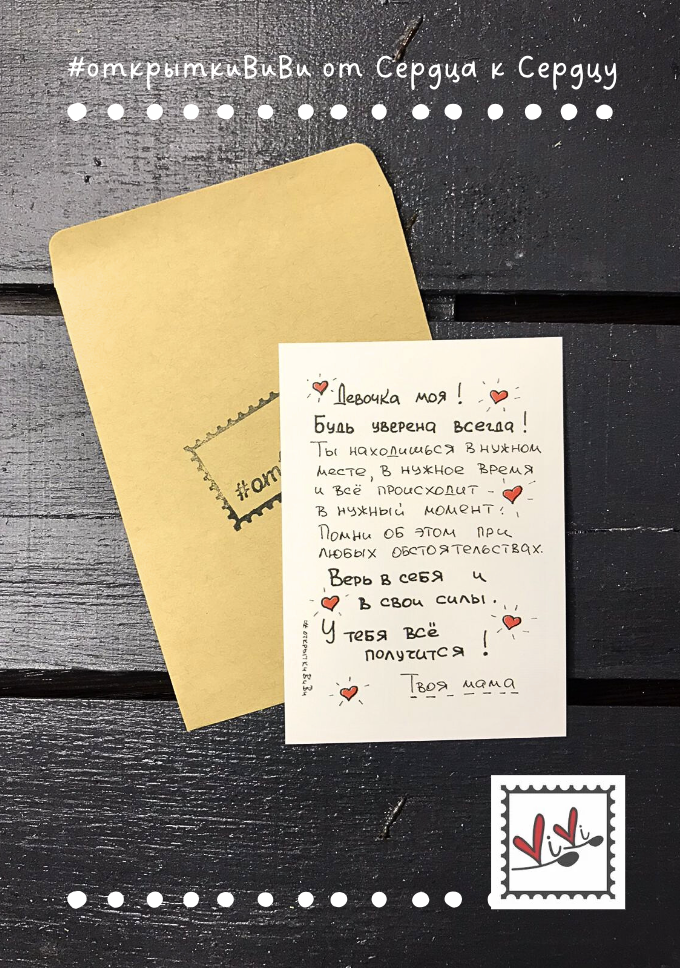 #открыткиВиВи от Сердца к Сердцу
Девочка моя!
Будь уверена всегда!
Ты находишься в нужном
месте, в нужное время
и всё происходит -
в нужный момент.
Помни об этом при
любых обстоятельствах.
Верь в себя и
в свои силы.
У тебя всё
получится!
Твоя мама
#открыткиВиВи
#от
ViVi